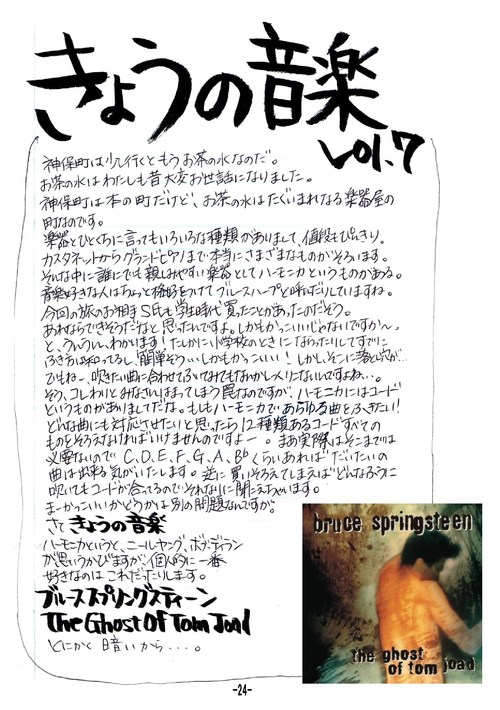 きょうの音楽
vol.7
神保町は少し行くともうお茶の水なのだ。
お茶の水はわたしも昔大変お世話になりました。
神保町は本の町だけど、お茶の水はたぐいまれなる楽器屋の
町なのです。
楽器とひとくちに言ってもいろいろな種類がありまして、値段もぴんきり。
カスタネットからグランドピアノまで本当にさまざまなものがそろいます。
そんな中に誰にでも親しみやすい楽器としてハーモニカというものがある。
音楽好きな人はちょっと格好をつけてブルースハープと呼んだりしていますね。
今回の旅のお相手S氏も学生時代買ったことがあったのだそう。
あれならできそうだなと思ったんですよ。しかもかっこいいじゃないですか〜、
と、うんうん、わかります!たしかに小学校のときにならったりしてすでに
ふき方は知ってるし、簡単そう…しかもかっこいい!しかし、そこに落とし穴が…
でもねー、吹きたい曲に合わせてふいてみてもなんかしっくりこないんですよね…。
そう、コレわりとみなさんはまってしまう罠なのですが、ハーモニカにはコード
というものがありましてだな。もしもハーモニカであらゆる曲をふきたい!
どんな曲にも対応させたいと思ったら12種類あるコードすべての
ものをそろえなければいけませんのですよー。まあ実際はそこまでは
必要ないので C、D、E、F、G、A、B♭くらいあればだいたいの
曲は出来る気がいたします。逆に買いそろえてしまえばどんなふうに
吹いてもコードが合ってるのでそれなりに聞こえちゃいます。
まーかっこいいかどうかは別の問題なんですが。
さて きょうの音楽
ハーモニカというと、ニール・ヤング、ボブ・ディラン
が思いうかびますが、個人的に一番
好きなのはこれだったりします。
ブルーススプリングスティーン
The Ghost Of Tom Joad
とにかく暗いから・・・・。
bruce springsteen
the ghost
of tom joad
-24-